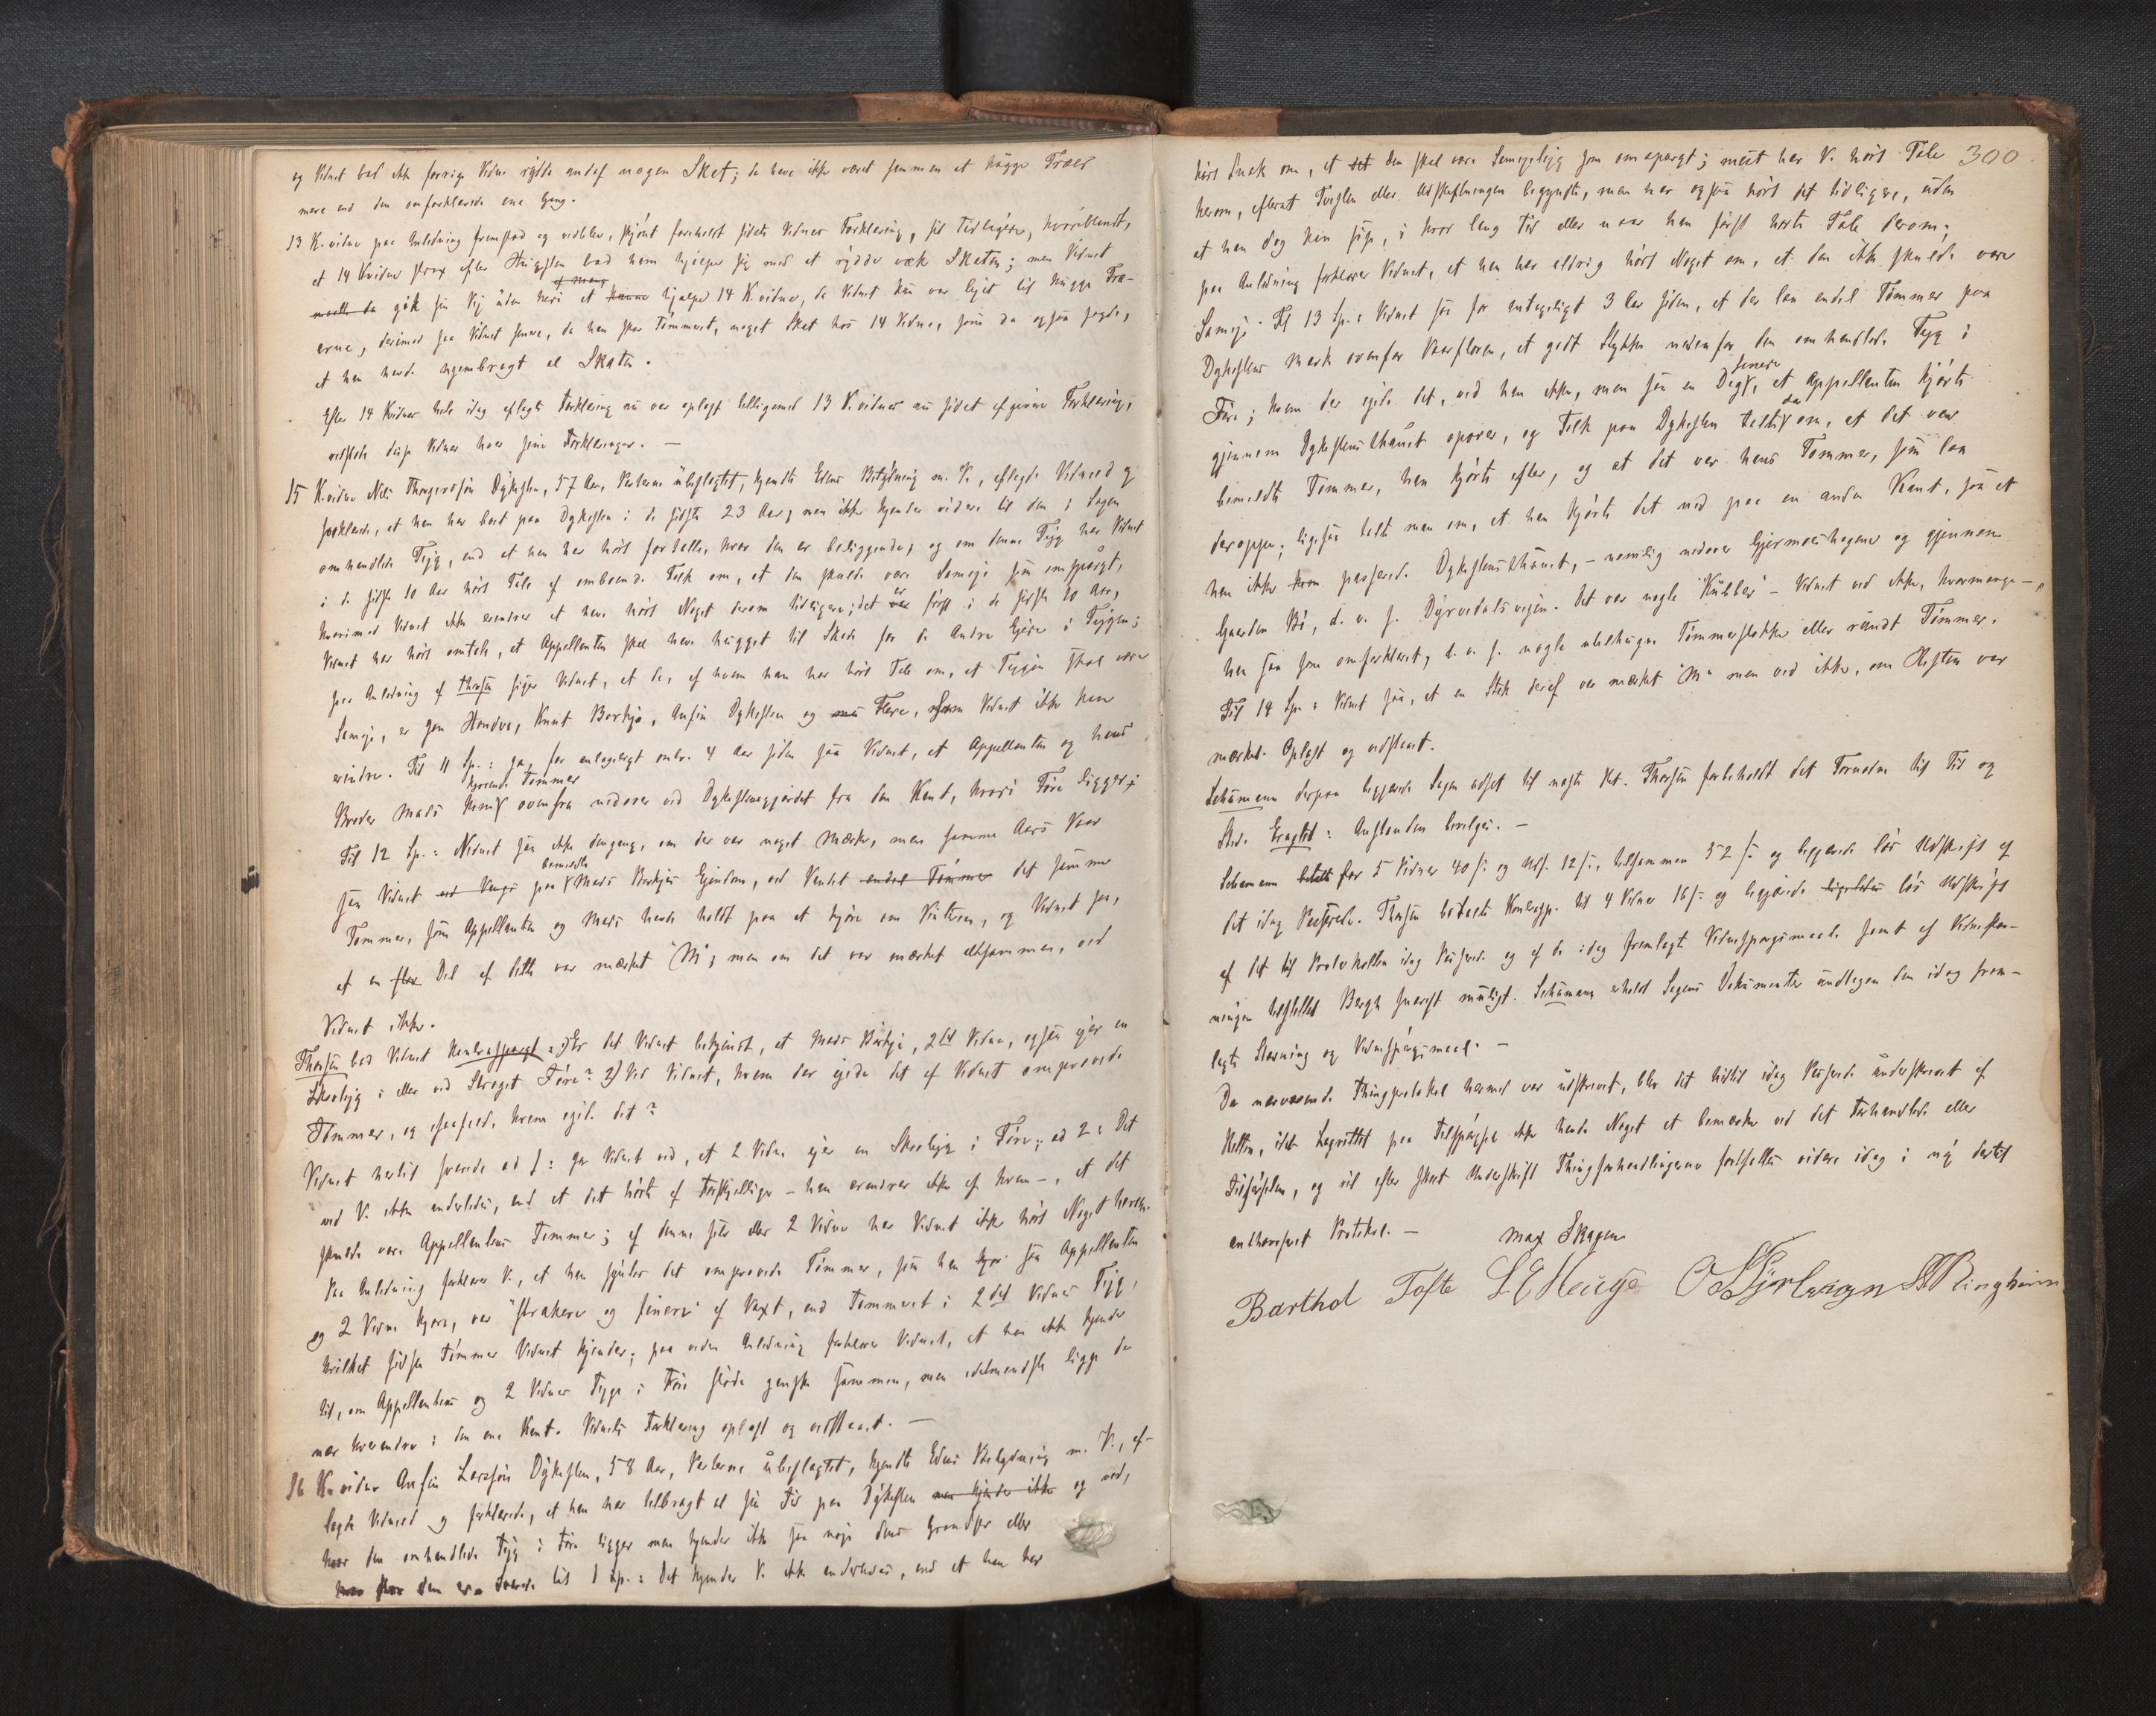 og Vidnet bad ikke forrige Vidne rydde endel nogen Skat; de have ikke været sammen at hugge Træer
mere end den omforklarede ene Gang.
13 K.vidne paa Anledning fremstod og vedblev, skjønt foreholdt sidste Vidnes Forklaring, sin tidligere, hvoriblandt,
at 14 Kvidne strax efter Hugsten bad ham hjælpe sig med at rydde væk Skaten; men Vidnet
gik sin Vej uden heri at hjælpe 14 K.vidne, da Vidnet kun var lejet til hugge Træ-
erne, derimod saa Vidnet senere, da han skar Tømmeret, noget Skat hos 14 Vidne, som da ogsaa sagde,
at han havde hjembragt al Skaten.
Efter 14 Kvidnes hele idag aflagte Forklaring nu var oplæst tilligemed 13 K.vidnes nu sidst afgivne Forklaring,
vedstode disse Vidner hver sine Forklaringer. —
15 K.vidne Nils Thorgerssøn Dykesten, 57 Aar, Parterne ubeslægtet, kjendte Edens Betydning m. V., aflagde Vidneed og
forklarede, at han har boet paa Dykesten i de sidste 23 Aar, men ikke kjender videre til den i Sagen
omhandlede Teig, end at han har hørt fortælle, hvor den er beliggende; og om denne Teig har Vidnet
i de sidste 10 Aar hørt Tale af omboende Folk om, at den skulde være Sameje som omspurgt,
hvorimod Vidnet ikke erindrer at have hørt Noget derom tidligere; det er først i de sidste 10 Aar,
Vidnet har hørt omtale, at Appellanten skal have hugget til Skade for de Andre Ejere i Tejgen;
paa Anledning af Thorsen siger Vidnet, at de, af hvem han har hørt Tale om, at Tejgen skal være
Sameje, er Jon Hondve, Knut Borkjo, Anfin Dykesten og Flere, som Vidnet ikke kan
erindre. Til 11 Sp.: Ja, for antageligt omtr. 4 Aar siden saa Vidnet, at Appellanten og hans
Broder Mads kom kjørende Tømmer ovenfra nedover ved Dykestensgjerdet fra den Kant, hvori Føre ligger;
Til 12 Sp.: Vidnet saa ikke dengang, om der var noget Mærke, men samme Aars Vaar
saa Vidnet paa bemeldte Mads Borkjes Ejendom, ved Vandet det samme
Tømmer, som Appellanten og Mads havde holdt paa at kjøre om Vinteren, og Vidnet saa,
at en Del af dette var mærket "M"; men om det var mærket altsammen, ved
Vidnet ikke.
Thorsen bad Vidnet kontraspurgt: 1) Er det Vidnet bekjendt, at Mads Borkje, 2det Vidne, ogsaa ejer en
Skovteig i eller ved Stroget Føre? 2) Ved Vidnet, hvem der ejede det af Vidnet omprovede
Tømmer, og isaafald, hvem ejede det?
Vidnet hertil svarede ad 1: Ja Vidnet ved, at 2 Vidne ejer en Skovteig i Føre; ad 2: Det
ved V. ikke anderledes, end at det hørte af Forskjellige – han erindrer ikke af hvem –, at det
skulde være Appellantens Tømmer; af denne selv eller 2 Vidne har Vidnet ikke hørt Noget herom.
Paa Anledning forklarer V., at han synes det omprovede Tømmer, som han saa Appellanten
og 2 Vidne kjøre, var "strakere og finere" af Vext, end Tømmeret i 2det Vidnes Teig,
hvilket sidste Tømmer Vidnet kjender; paa videre Anledning forklarer Vidnet, at han ikke kjender
til, om Appellantens og 2 Vidnes Teige i Føre støde ganske sammen, men idetmindste ligge de
nær hverandre i den ene Kant. Vidnets Forklaring oplæst og vedstaaet. —
16 K.vidne Anfin Larssøn Dykesten, 58 Aar, Parterne ubeslægtet, kjendte Edens Betydning m. V., af-
lagde Vidneed og forklarede, at han har tilbragt al sin Tid paa Dykesten og ved,
hvor den omhandlede Teig i Føre ligger men kjender ikke saa nøje dens Grændser eller
svarede til 1 Sp.: Det kjender V. ikke anderledes, end at han har
300
hørt Snak om, at den skal være Samejeteig som omspurgt; mest har V. hørt Tale
herom, efterat Tvisten eller Udskiftningen begyndte, men har ogsaa hørt det tidligere, uden
at han dog kan sige, i hvor lang Tid eller naar han først hørte Tale derom;
paa Anledning forklarer Vidnet, at han har aldrig hørt Noget om, at den ikke skulde være
Sameje. Til 13 Sp.: Vidnet saa for antageligt 3 Aar siden, at der laa endel Tømmer paa
Dykestens Mark ovenfor Vaarfloren, et godt Stykke nedenfor den omhandlede Teig i
Føre; hvem der ejede det, ved han ikke, men saa en Dag senere, at Appellanten kjørte
gjennem Dykestensthunet opover, og Folk paa Dykesten talte da om, at det var
bemeldte Tømmer, han kjørte efter, og at det var hans Tømmer, som laa
deroppe; ligesaa talte man om, at han kjørte det ned paa en anden Kant, saa at
han ikke kom passerende Dykestensthunet, – nemlig nedover Gjermeshagene og gjennem
Gaarden Bø, d. v. s. Dyrvedalsvejen. Det var nogle "Kubber" – Vidnet ved ikke, hvormange –,
han saa som omforklaret, d. v. s. nogle utilhugne Tømmerstokke eller rundt Tømmer.
Til 14 Sp.: Vidnet saa, at en Stok deraf var mærket "M" men ved ikke, om Resten var
mærket. Oplæst og vedstaaet.
Schumann derpaa begjærede Sagen udsat til næste Ret. Thorsen forbeholdt det Fornødne til Tid og
Sted. Eragtet: Anstanden bevilges. —
Schumann for 5 Vidner 40 s. og Udf. 12 s., tilsammen 52 s. og begjærede løs Udskrift af
det idag Passerede. Thorsen betalte Kontrasp. til 4 Vidner 16 s. og begjærede løs Udskrift
af det til Protokollen idag Passerede og af de idag fremlagte Vidnespørgsmaale samt af Vidnestæv-
ningen tilstillet Bergh snarest muligt. Schumann erholdt Sagens Dokumenter undtagen den idag frem-
lagte Stævning og Vidnespørgsmaal. —
Da nærværende Thingprotokol hermed var udskrevet, blev det hidtil idag Passerede underskrevet af
Retten, idet Lagrettet paa Tilspørgsel ikke havde Noget at bemærke ved det Forhandlede eller
Tilførselen, og vil efter skeet Underskrift Thingforhandlingerne fortsættes videre idag i ny dertil
authoriseret Protokol. — Max Skagen
Barthol Tofte L E Hauge O S Gjerlangen A Ringheim